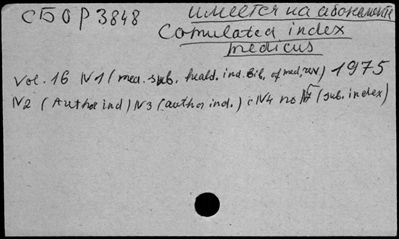 СБО Р3848 имеется на абонементе
Comulated index
medicus
Vol. 16 N1 (med. sub. heald. ind. Bib. of med. rev) 1975
N2 (Author ind) N3 (author ind.) с N4 по N7 (sub. index)